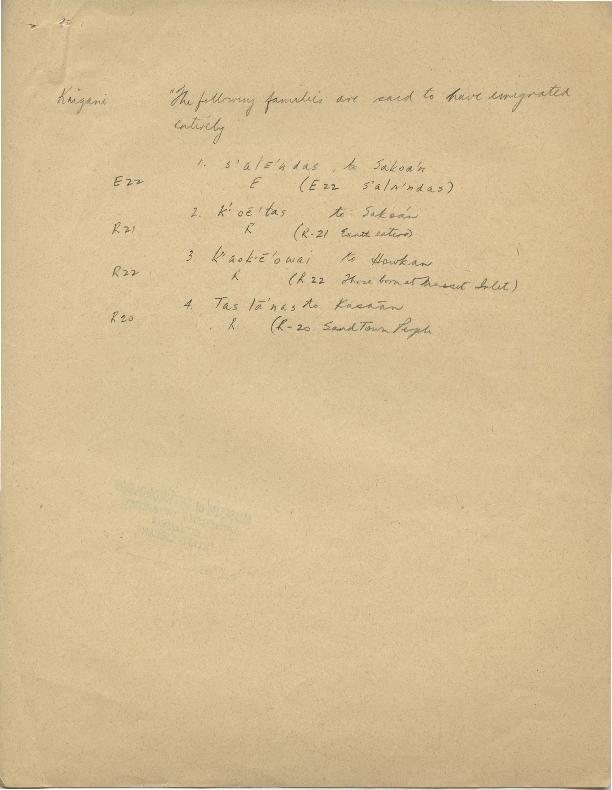 Kaigani "The following families are said to have emigrated
entirely
1. s'alE'ndas, to Sakoān
E22 E (E22 s'alA'ndas)
2. K'oē'tas to Sakoān
R21 R (R-21 Earth eaters)
3 k'aok·ē'owai to Howkan
R22 R (R22 Those born at Masset Inlet)
4. Tas lā'nas to Kasaān
R20 R (R-20 Sand Town People